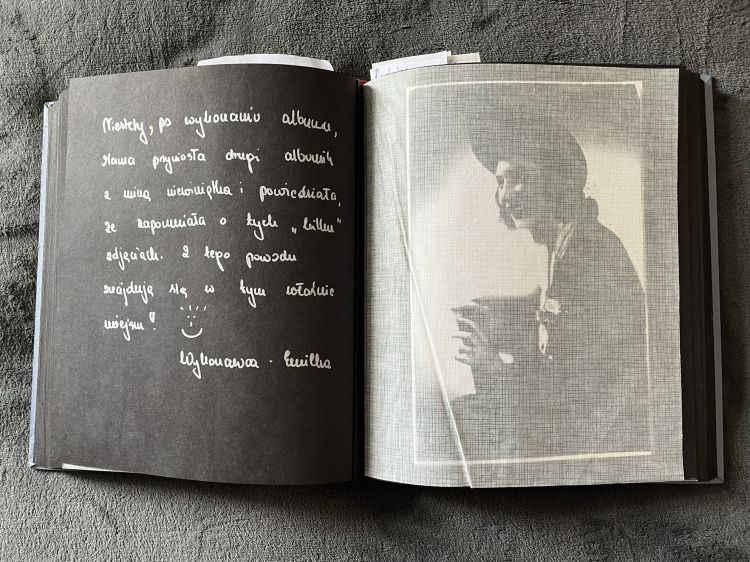 Niestety, po wykonaniu albumu,
Mama przyniosła drugi albumik
z miną niewiniątka i powiedziała,
że zapomniała o tych „kilku”
zdjęciach. Z tego powodu
znajdują się w tym właśnie
miejscu!
Wykonawca - Emilka